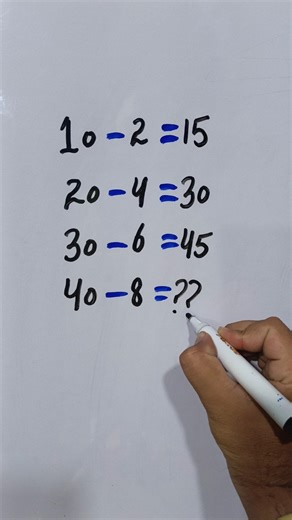 10-2=15
20-4=30
30-6=45
40-8=??